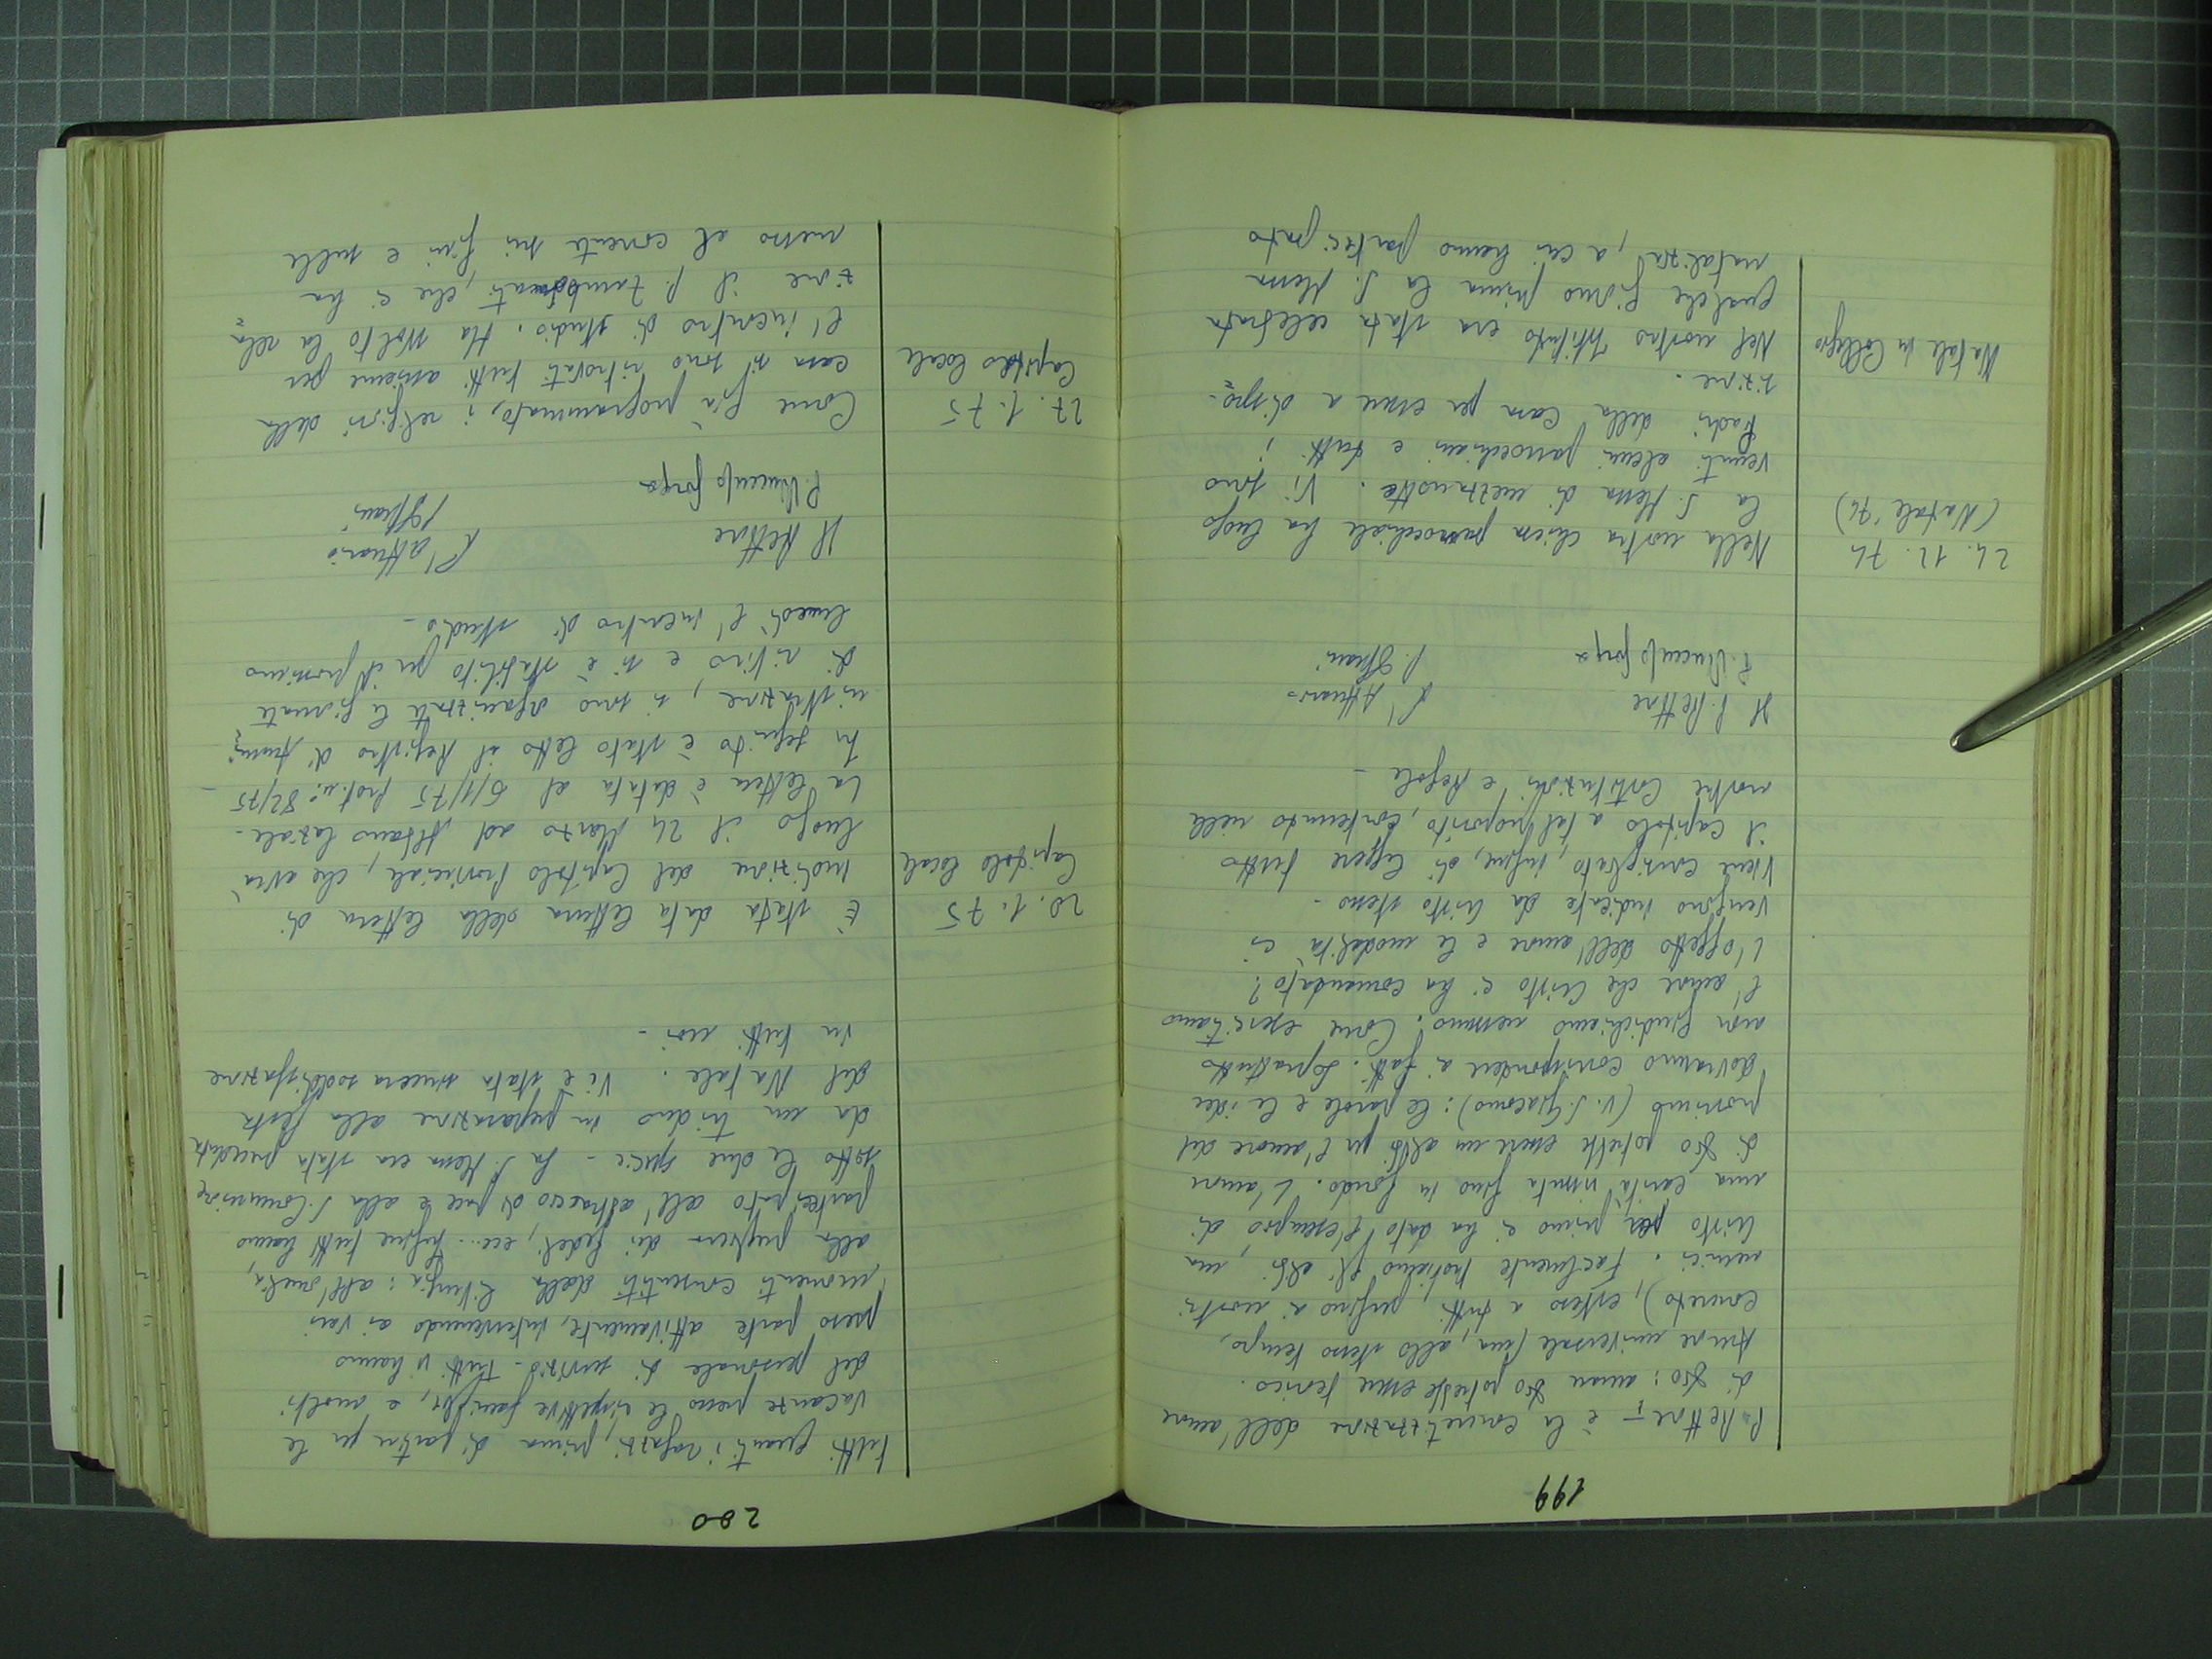 199
P. Rettore – è la concretizzazione dell'amore
di Dio: amare Dio potrebbe essere teorico.
Amore universale (ma, allo stesso tempo,
concreto), esteso a tutti, perfino ai nostri
nemici. Facilmente poniamo gli altri, ma
Cristo per primo ci ha dato l'esempio di
una carità vissuta fino in fondo. L'amore
di Dio potrebbe essere un alibi per l'amore del
prossimo (v. S. Giacomo): le parole e le idee
dovranno corrispondere ai fatti. Soprattutto
non giudichiamo nessuno. Come esercitiamo
l'amore che Cristo ci ha comandato?
L'oggetto dell'amore e le modalità ci
vengono indicate da Cristo stesso –
Viene consigliato, infine, di leggere tutto
il Capitolo a tal proposito, contenuto nelle
nostre Costituzioni e Regole –
Il P. Rettore L'Attuario
P. Vincenzo Gorga P.
24. 12. 74
(Natale '74)
Nella nostra chiesa parrocchiale ha luogo
la S. Messa di mezzanotte. Vi sono
venuti alcuni parrocchiani e tutti i
Padri della Casa per essere a dispo-
sizione.
Natale in Collegio
Nel nostro Istituto era stata celebrata
qualche giorno prima la S. Messa
natalizia, a cui hanno partecipato
200
tutti quanti i ragazzi, prima di partire per le
vacanze presso le rispettive famiglie, e molti
del personale di servizio – Tutti vi hanno
preso parte attivamente, intervenendo ai vari
momenti consentiti dalla Liturgia: all'omelia,
alla preghiera dei fedeli, ecc... Infine tutti hanno
partecipato all'abbraccio di pace e alla S. Comunione
sotto le due specie – La S. Messa era stata preceduta
da un triduo in preparazione alla festa
del Natale. Vi è stata sincera soddisfazione
in tutti noi –
20. 1. 75
Capitolo locale
È stata data lettura della lettera di
indizione del Capitolo Provinciale, che avrà
luogo il 24 Marzo ad Albano Laziale –
La lettera è datata al 6/1/75 prot. n° 82/75 –
In seguito è stato letto il Registro d'Ammi=
nistrazione, si sono organizzate le giornate
di ritiro e si è stabilito per il prossimo
lunedì l'incontro di studio –
Il Rettore L'attuario
P. Vincenzo Gorga
27. 1. 75
Capitolo locale
Come già programmato, i religiosi della
casa si sono ritrovati tutti assieme per
l'incontro di studio. Ha svolto la rela=
zione il P. Zambonati, che ci ha
messo al corrente sui fini e sulle